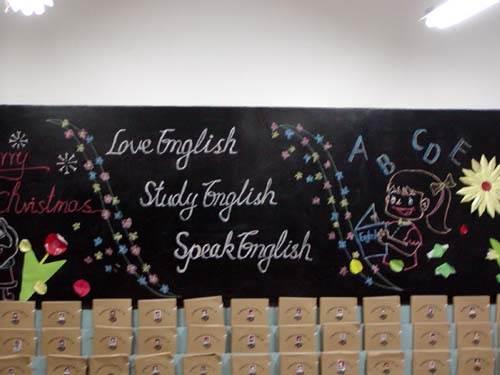 rry
Christmas
Love English
Study English
Speak English
A B C D E
English